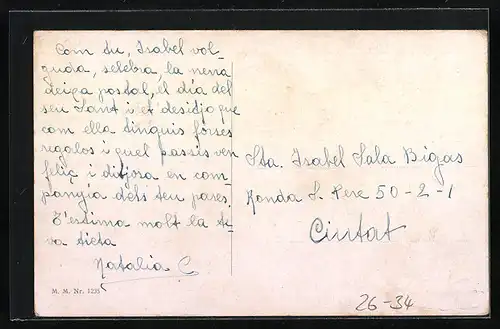 Com tu, Isabel vol-
guda, selebra, la nena
deiga postal, el dia del
seu Sant i et desitjo que
com ella tinguis forses
regolos i quel passis ven
feliç i ditjosa en com-
panyia dels teu pares.
T'estima molt la te-
va tieta
Natalia C
Sta. Isabel Sala Bigas
Ronda S. Pere 50-2-1
Ciutat
M. M. Nr. 1235
26-34